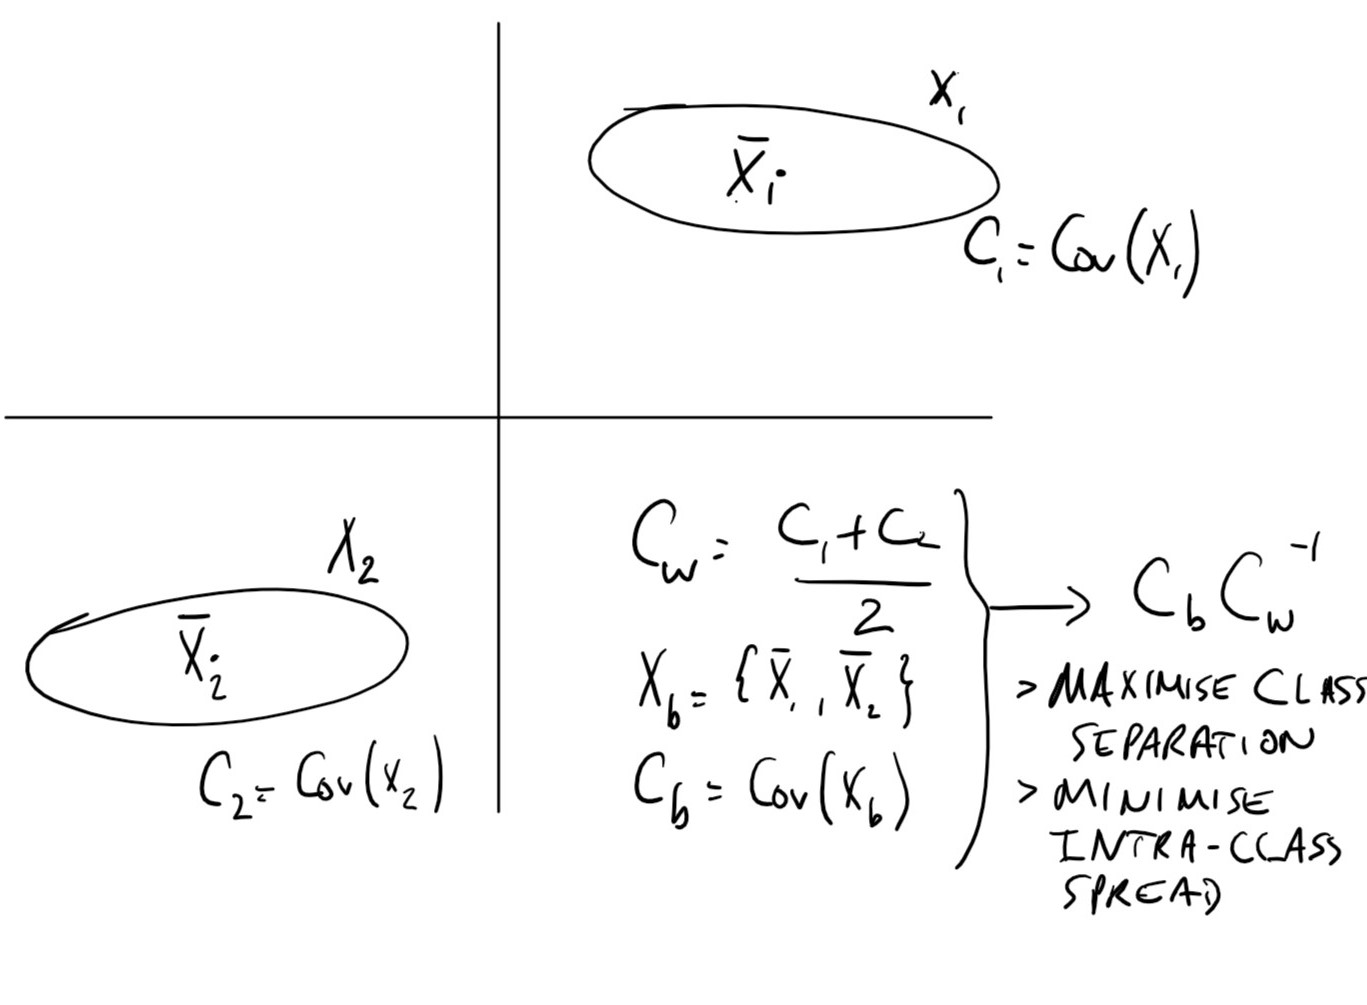 X₁
X̄₁
C₁ = Cov(X₁)
X₂
X̄₂
C₂ = Cov(X₂)
C_w = (C₁ + C₂) / 2
X_b = {X̄₁, X̄₂}
C_b = Cov(X_b)
C_b C_w⁻¹
> MAXIMISE CLASS
SEPARATION
> MINIMISE
INTRA-CLASS
SPREAD